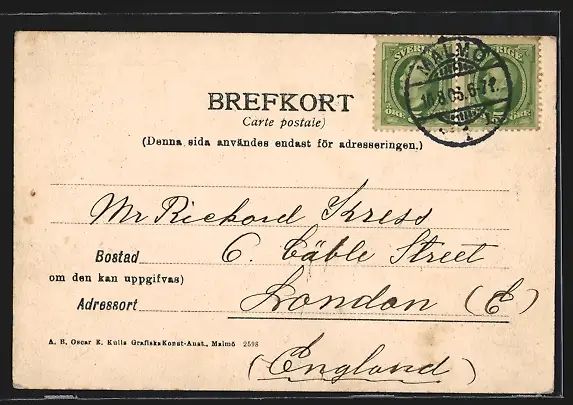 SVERIGE
MALMÖ
BREFKORT
Carte postale)
(Denna sida användes endast för adresseringen.)
Mr Rickord Kress
Bostad 6. Cäble Street
om den kan uppgifvas)
Adressort London (E)
A. B. Oscar E. Kulls Grafiska Konst-Anst., Malmö 2598
(England)